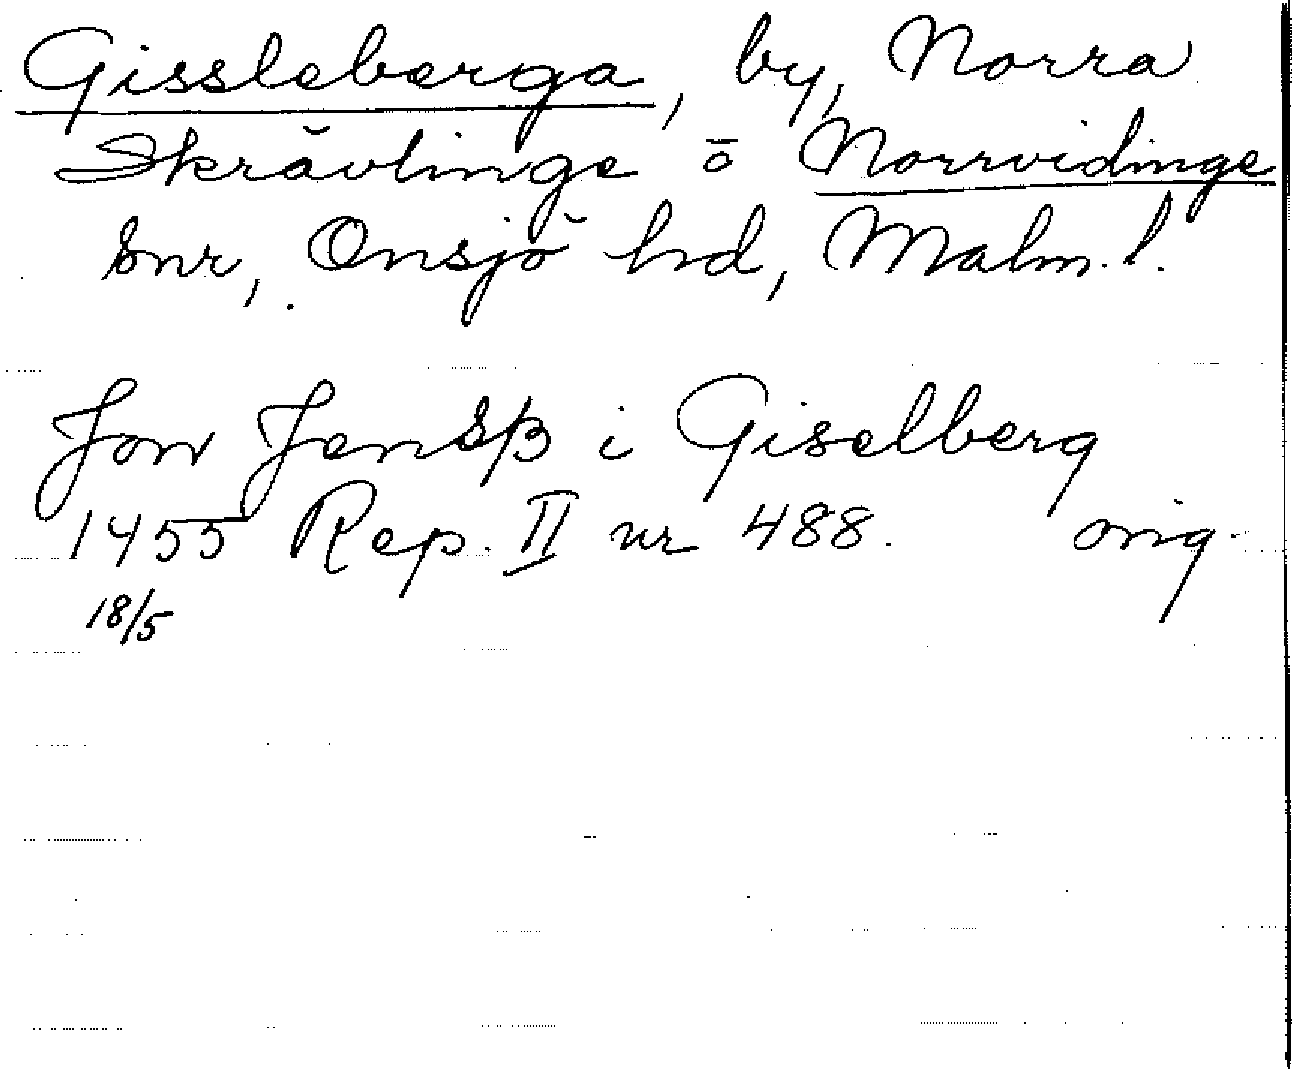 Gissleberga, by, Norra
Skrävlinge o Norrvidinge
snr, Onsjö hd, Malm. l.
Jon Jensß i Giselberg
1455 Rep. II nr 488. orig.
18/5